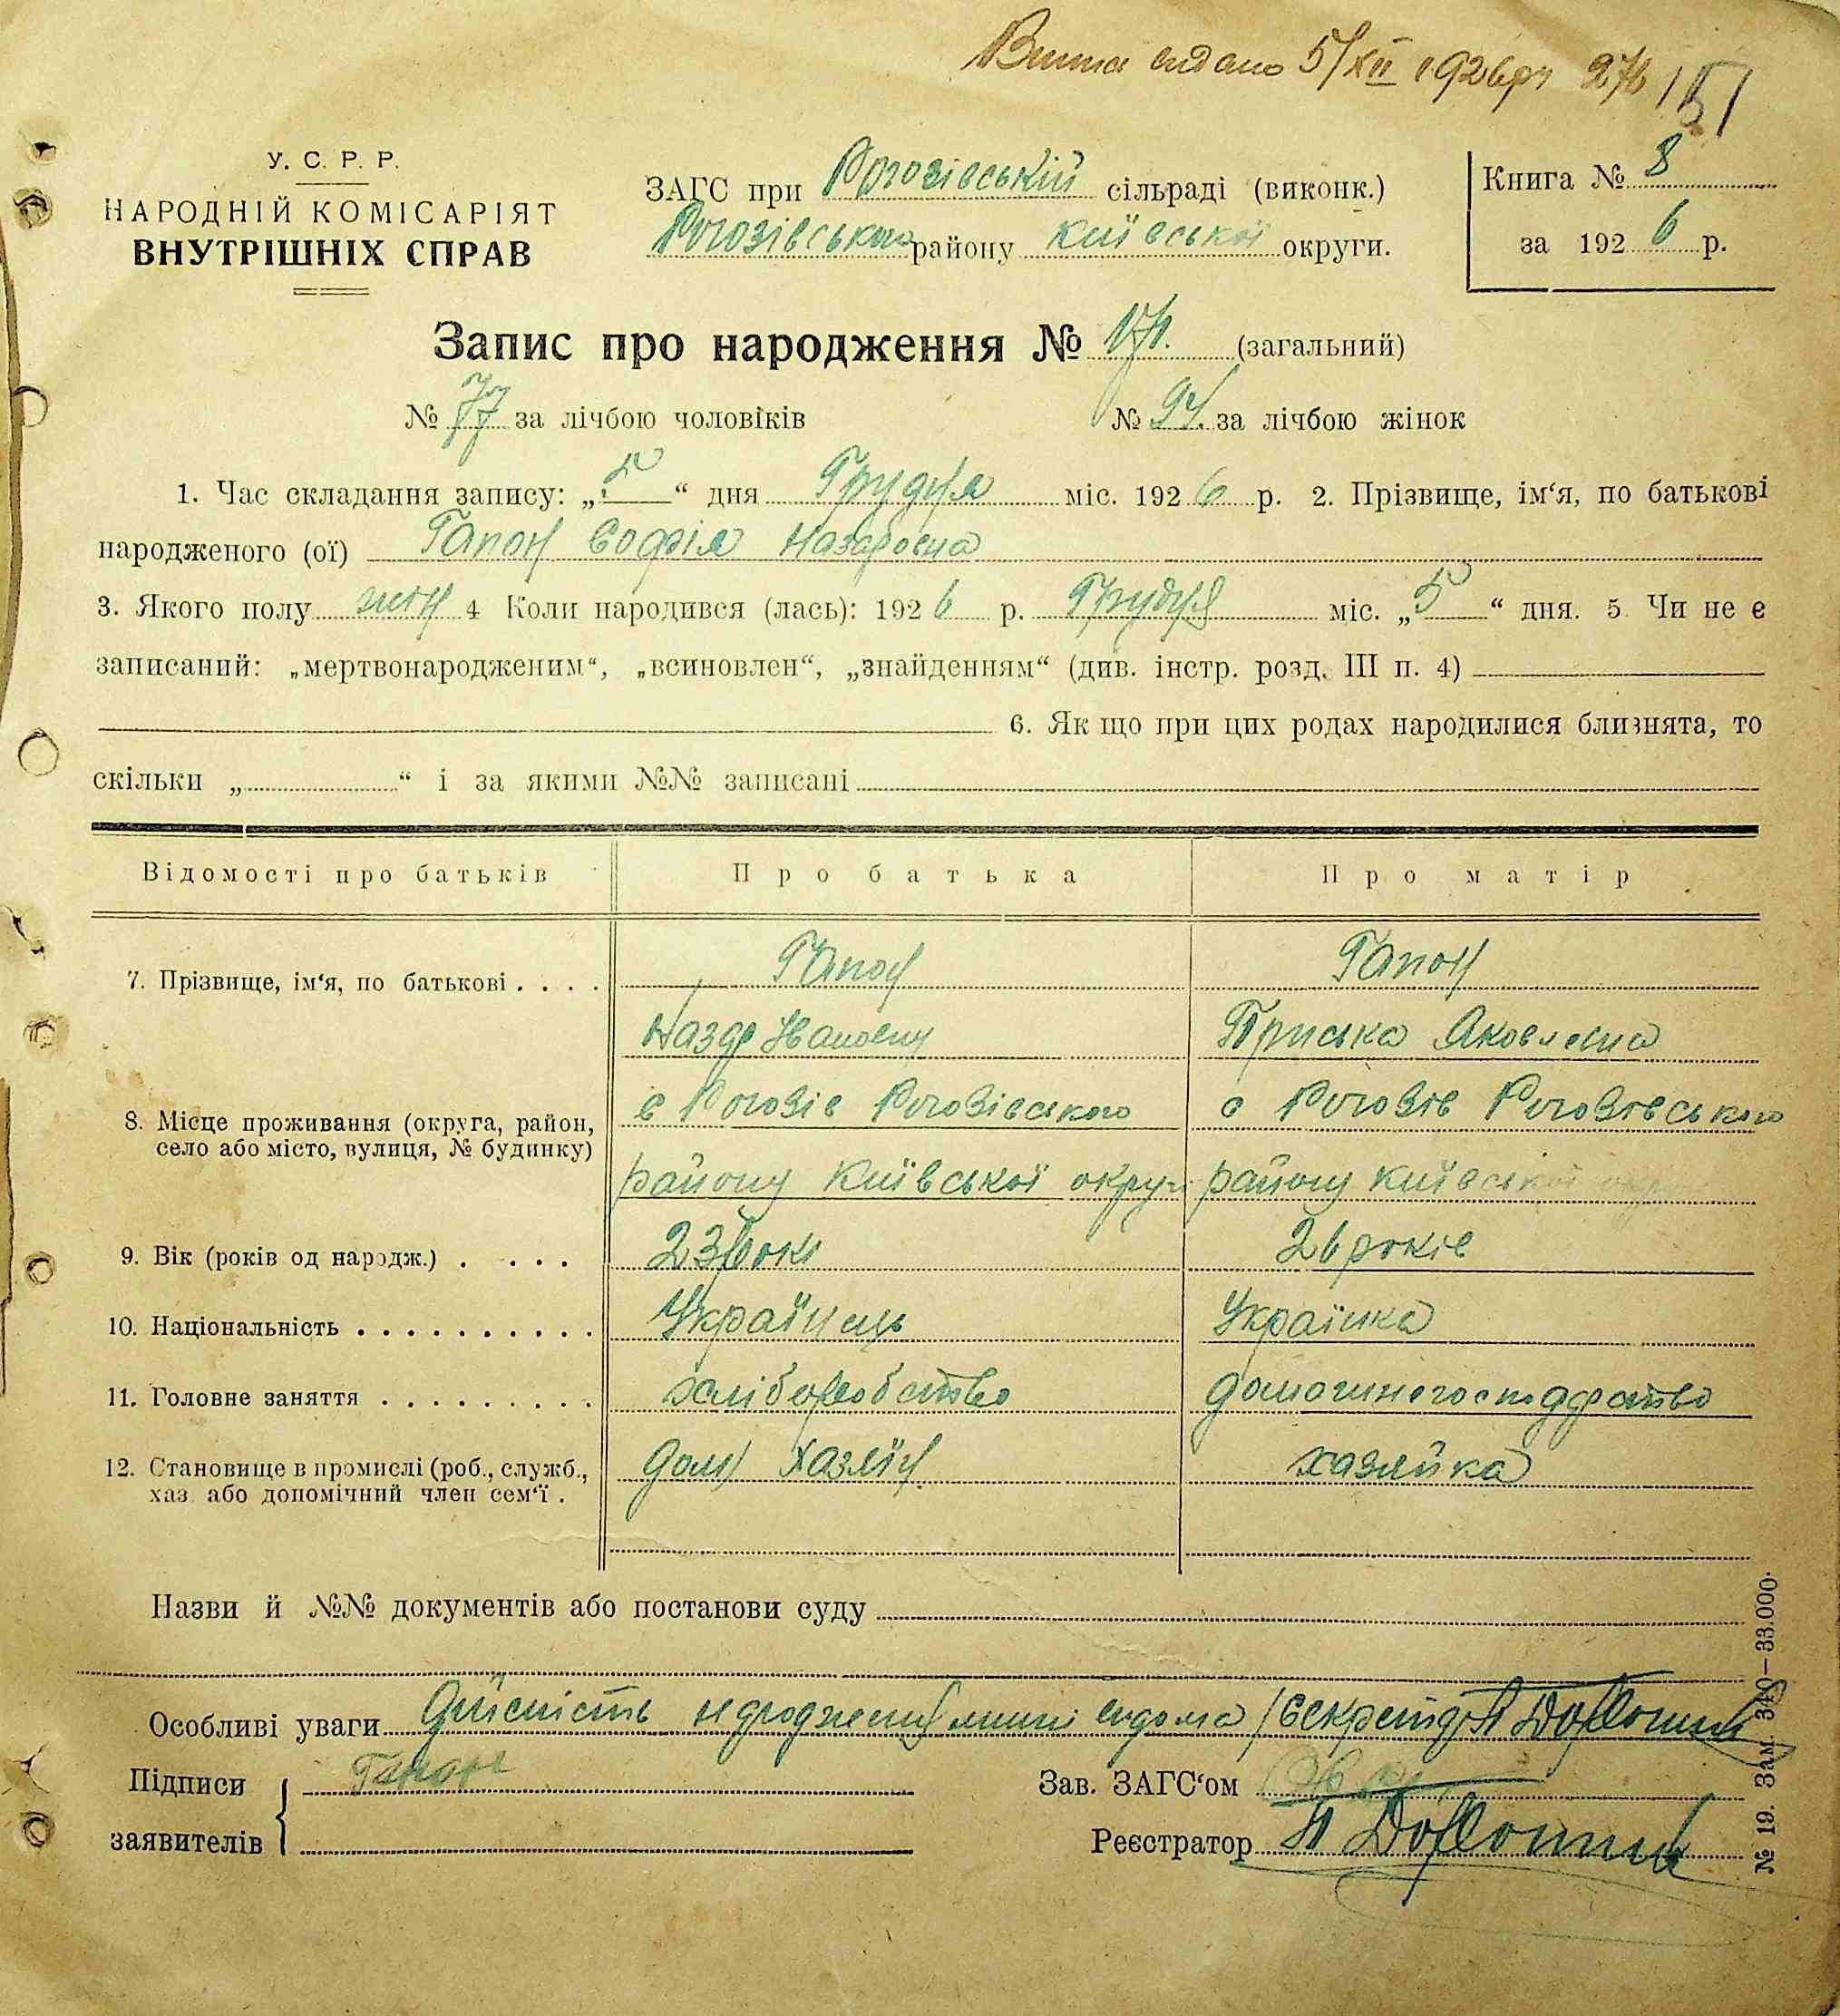 видано 5/XII 1926р. 151
У. С. Р. Р.
НАРОДНІЙ КОМІСАРІЯТ
ВНУТРІШНІХ СПРАВ
ЗАГС при Рогозівській сільраді (виконк.)
Рогозівського району Київської округи.
Книга № 8
за 1926 р.
Запис про народження № 171. (загальний)
№ 77 за лічбою чоловіків № 94. за лічбою жінок
1. Час складання запису: „5“ дня Грудня міс. 1926 р. 2. Прізвище, ім‘я, по батькові
народженого (ої) Гапон Софія Назаровна
3. Якого полу жін 4 Коли народився (лась): 1926 р. Грудня міс. „5“ дня. 5 Чи не є
записаний: „мертвонародженим“, „всиновлен“, „знайденням“ (див. інстр. розд. III п. 4)
6. Як що при цих родах народилися близнята, то
скільки „ “ і за якими №№ записані
Відомості про батьків Про батька Про матір
7. Прізвище, ім‘я, по батькові . . . . Гапон Гапон
Назар Іванович Пріська Яковлевна
8. Місце проживання (округа, район, село або місто, вулиця, № будинку) с Рогозів Рогозівського с Рогозів Рогозівського
району Київської округи району Київської округи
9. Вік (років од народж.) . . . . 23 роки 26 років
10. Національність . . . . . . . . . . Українець Українка
11. Головне заняття . . . . . . . . . хліборобство домашнегосподарство
12. Становище в промислі (роб., служб., хаз. або допомічний член сем‘ї . дом хазяїн хазяйка
Назви й №№ документів або постанови суду
Особливі уваги Дійсність народження мині відома /Секретар П
Підписи заявителів Гапон
Зав. ЗАГС‘ом
Реєстратор П
№ 19. Зам. 340—33.000.